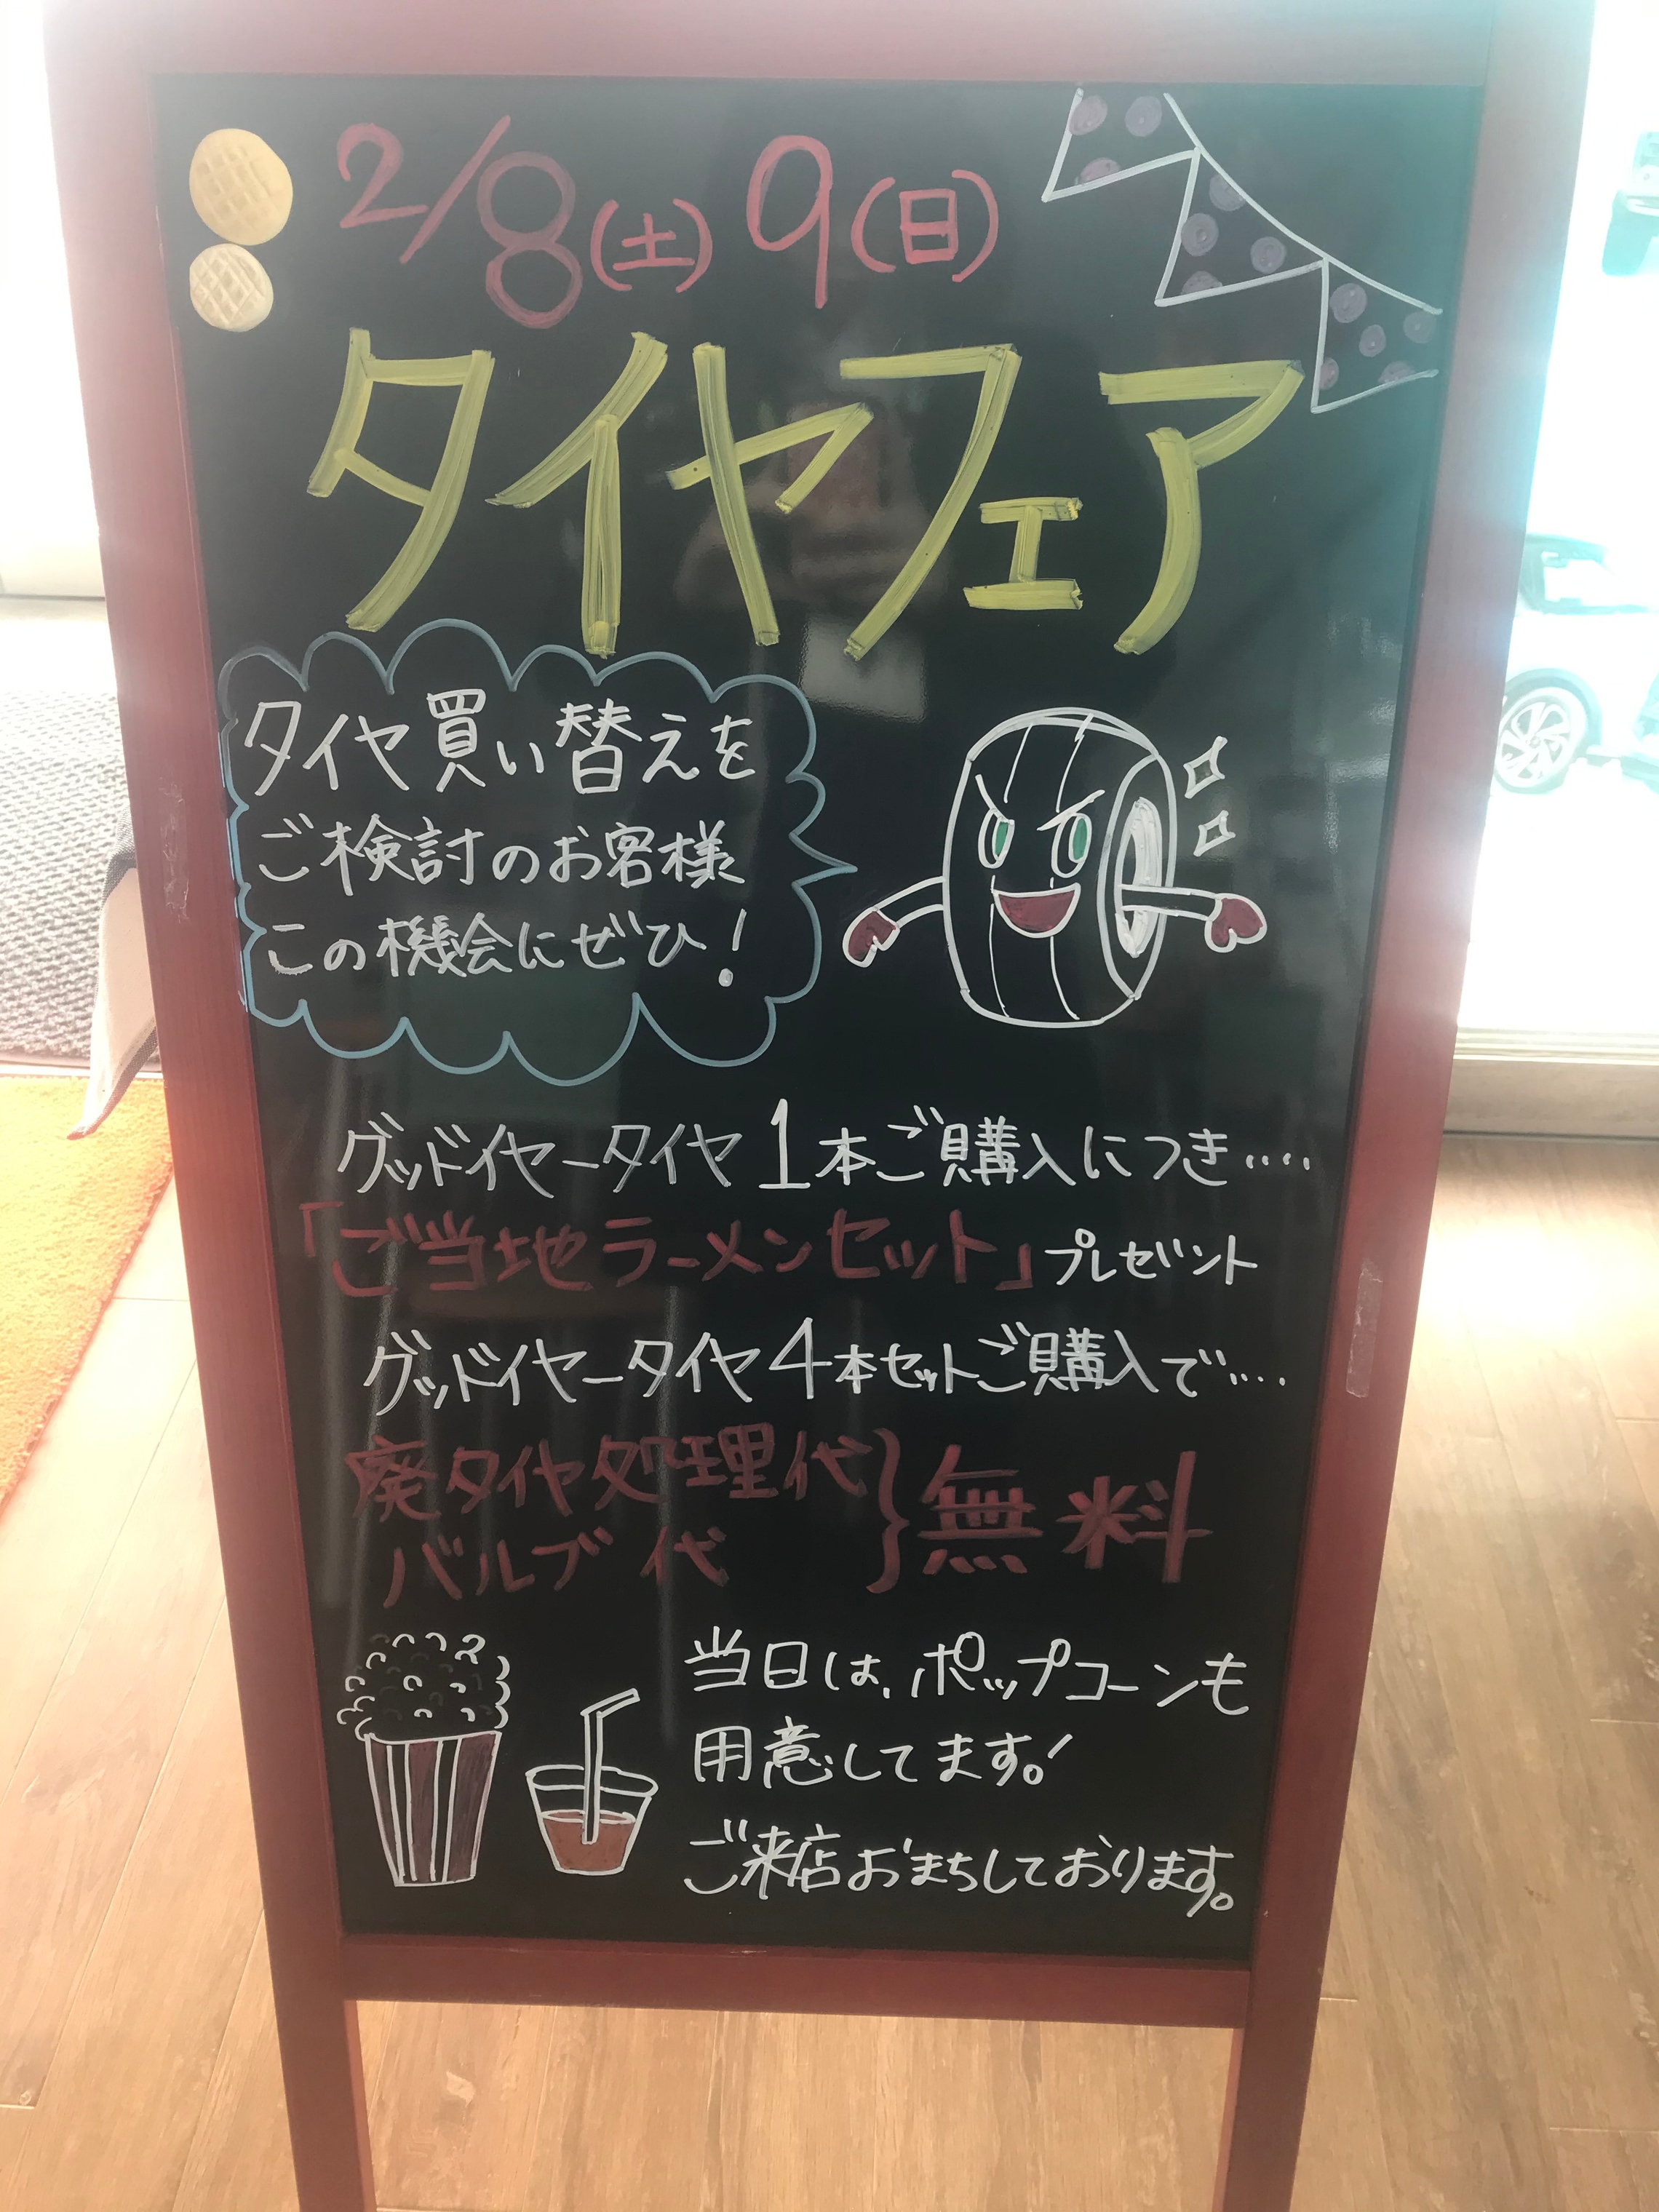 2/8(土) 9(日)
タイヤフェア
タイヤ買い替えを
ご検討のお客様
この機会にぜひ!
グッドイヤータイヤ1本ご購入につき‥‥
「ご当地ラーメンセット」プレゼント
グッドイヤータイヤ4本セットご購入で‥‥
廃タイヤ処理代
バルブ代
}無料
当日は、ポップコーンも
用意してます!
ご来店おまちしております。